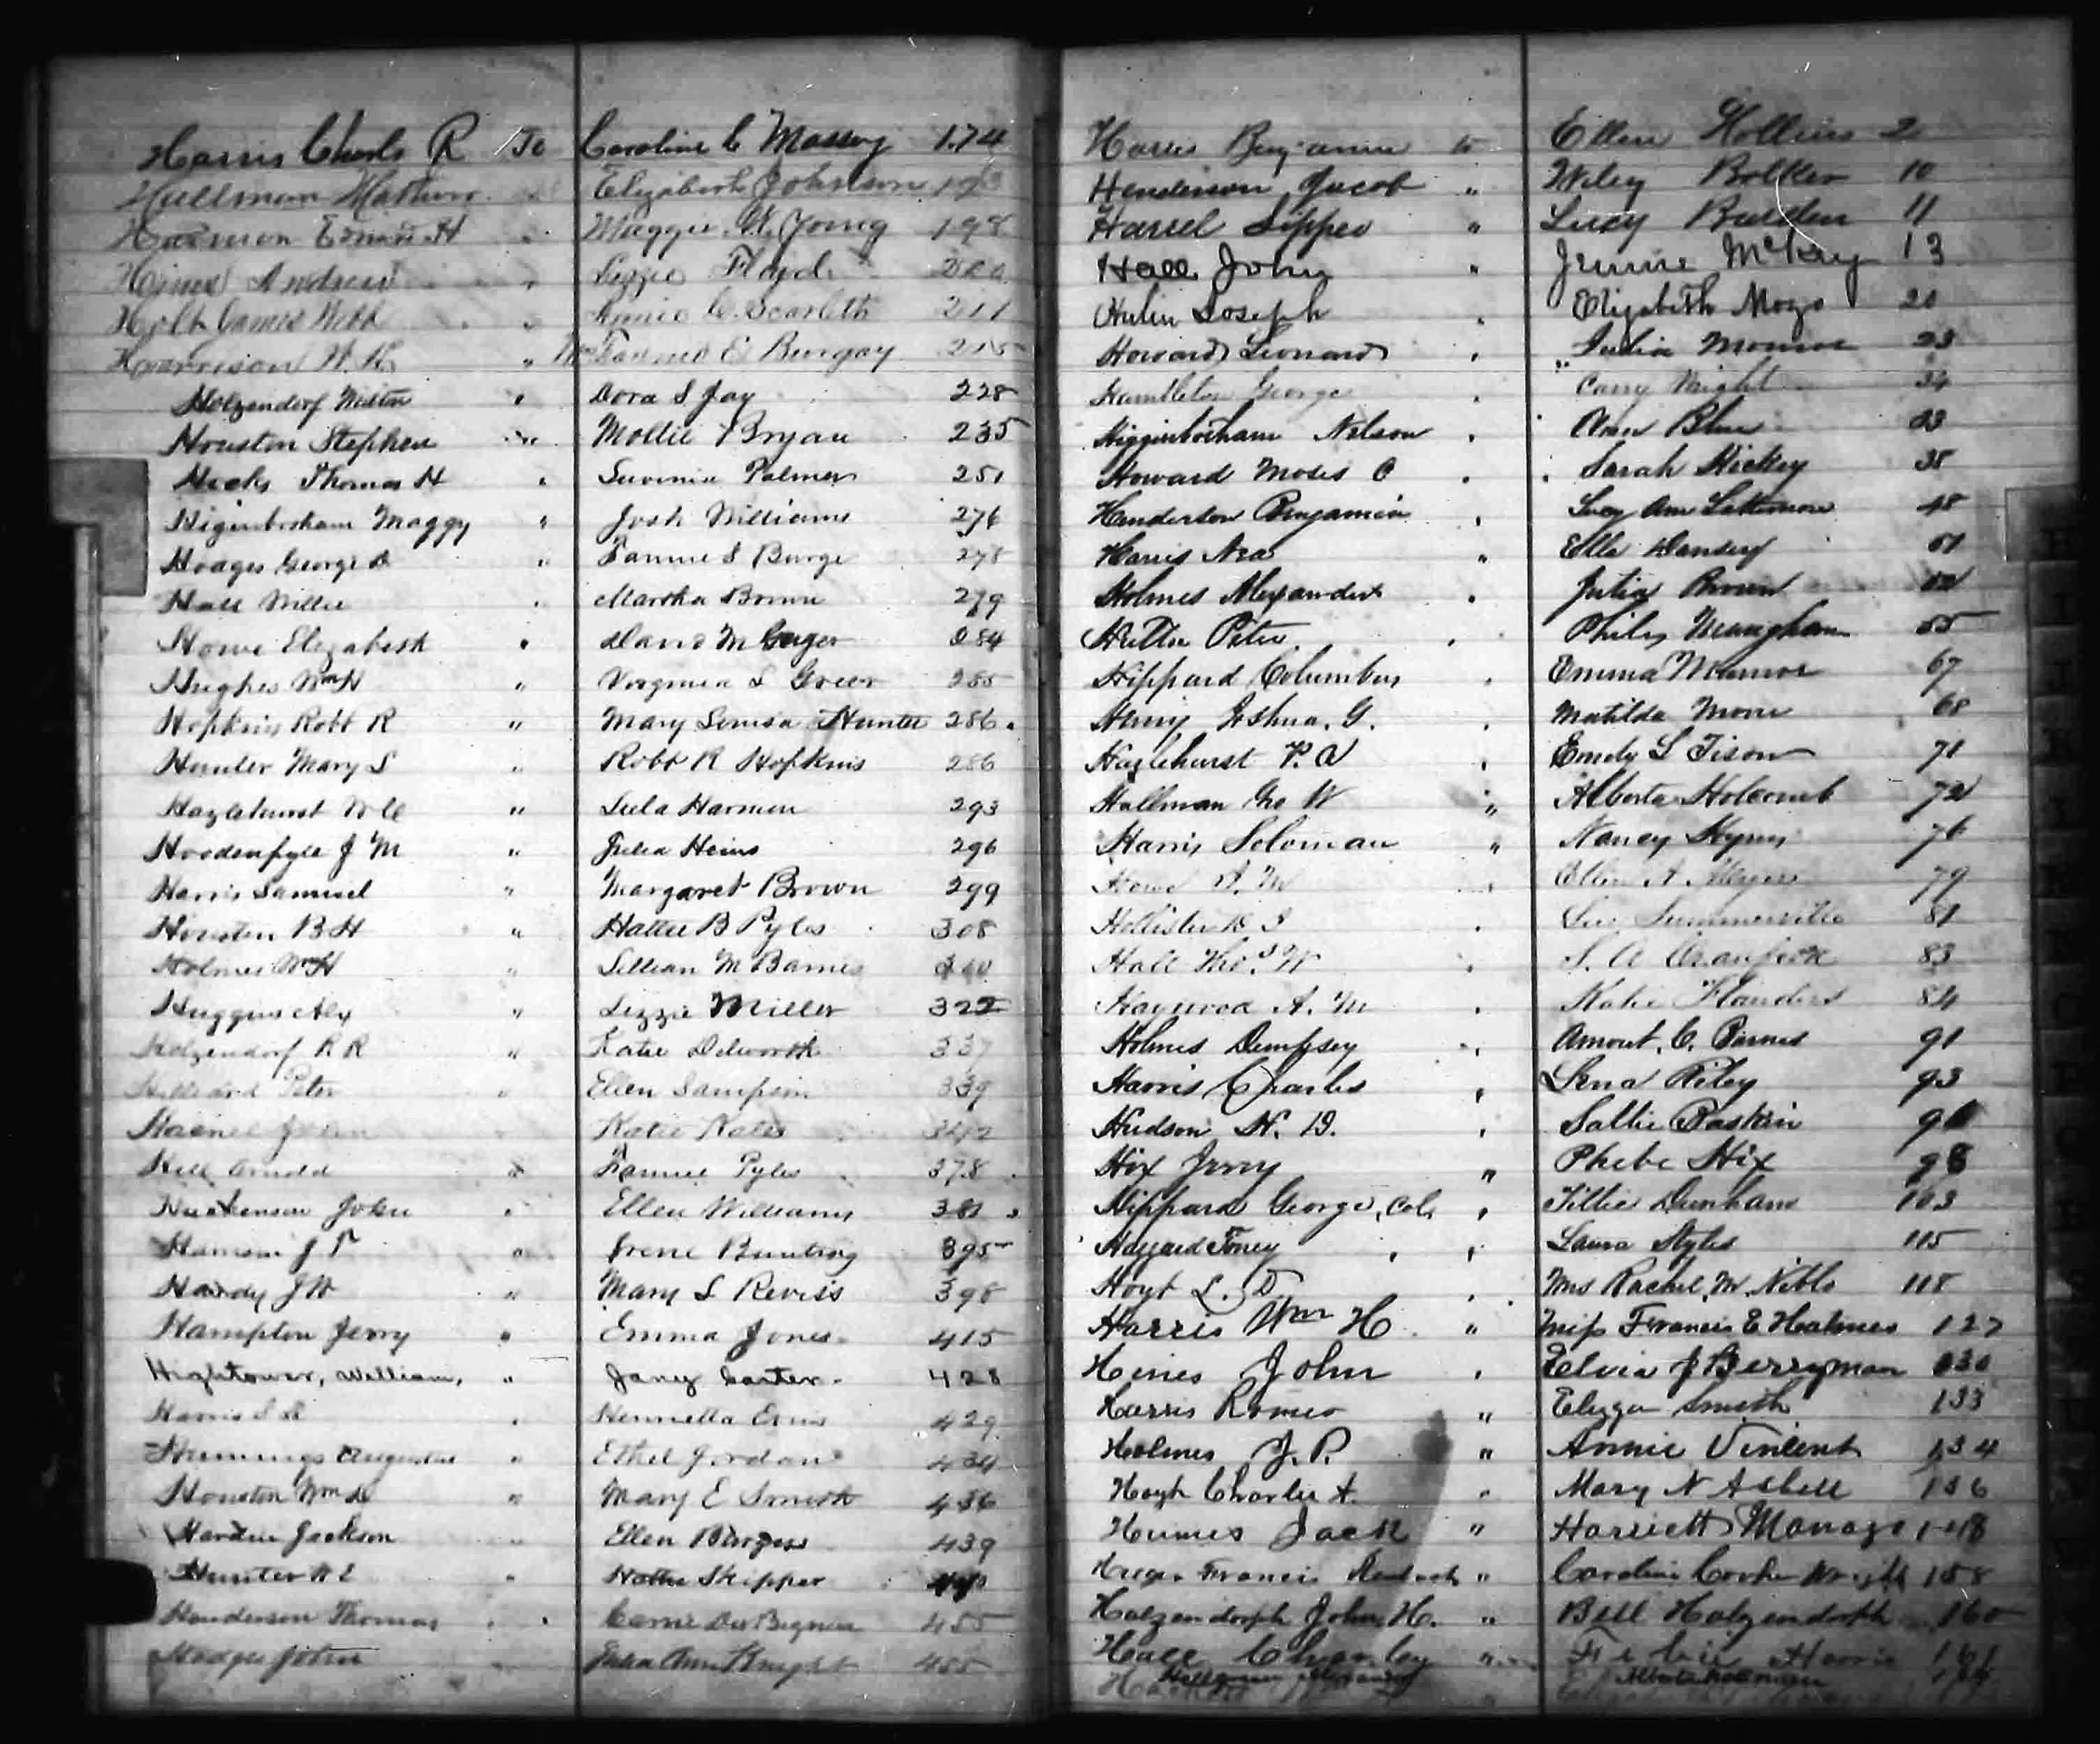 Harris Charls R To Caroline C Massey 174
Hullman Elizabeth Johnson
Harmon Edward H Maggie Young 198
Hines Andrew Lizzie Floyd
Holt James Webb Annie C. Scarlett 211
Harrison W. H. Fannie E Burgay 215
Holzendorf Milton " Dora S Jay 228
Houston Stephen " Mollie Bryan 235
Hicks Thomas H " Luvinia Palmer 251
Higinbotham Maggy " Josh Williams 276
Hodges George D " Fannie S Burge 278
Hall Willie " Martha Brown 279
Howe Elizabeth " David M 284
Hughes Wm H " Virginia L Greer 285
Hopkins Robt R " Mary Louisa Hunter 286
Hunter Mary L " Robt R Hopkins 286
Hazlehurst W C " Lula Harmon 293
Hoodenpyle J M " Julia Heins 296
Harris Samuel " Margaret Brown 299
Houston B H " Hattie B Pyles 308
Holmes Wm H " Lillian M Barnes
Huggins Alex " Lizzie Miller 322
Holzendorf R R " Katie Dilworth 337
Hilliard Peter " Ellen Sampson 339
John Katie Kates
Hill Arnold " Fannie Pyles 378
John " Ellen Williams 381
J T " Irene Bunting 395
Handy J W " Mary L Reviss 398
Hampton Jerry " Emma Jones 415
Hightower, William, " Jany Carter 428
Harris S A " Henrietta 429
Hemmings Augustus " Ethel Jordan 434
Houston Wm A " Mary E Smith 436
Hardee Jackson " Ellen Burgess 439
Hunter W E " Hattie Skipper
Henderson Thomas " Carrie DuBignon 455
Hodges John Julia Ann Knight 455
Harris Benjamin to Ellen Hollins 2
Henderson Jacob " Wiley Bolker 10
Harrel Sippeo " Lucy Burden 11
Hall John " Jennie McKay 13
Hulin Joseph " Elizabeth Mozo 20
Howard Leonard " Julia Monroe 23
Hambleton George " Carry Wright
Higginbotham Nelson " Ann Blue 33
Howard Moses C " Sarah Hickey 38
Henderson Benjamin " Lucy Ann Lattimore 48
Harris Nea " Ella Dansey 51
Holmes Alexander " Julia Brown 52
Peter " Philis Manghham 55
Hippard Columbus " Emma Manor 67
Henry Joshua. G. " Matilda Moore 68
Hazlehurst P. A " Emely L Tison 71
Hallman Geo W " Alberta Holcomb 72
Harris Soloman " Nancy Hymes 76
Howe S. M " Ellen A. Meyers 79
Hollister H S " Summerville 81
Hall Thos W " S. A 83
Haywood A. M " Katie Flanders 84
Holmes Dempsey " Amout. C. Barnes 91
Harris Charles " Lena Riley 93
Hudson N. D. " Sallie Baskin
Hix Jerry " Phebe Hix 98
Hippard George, Col, " Tillie Dunham 103
Hazzard Toney " Laura Styles 115
Hoyt L. D " Mrs Rachel. M. Niblo 118
Harris Wm H " Miss Francis E Holmes 127
Hines John " Elvia J Berryman 130
Harris Romeo " Elizza Smith 133
Holmes J. P. " Annie Vincent 134
Hoyt Charlie A. " Mary N Asbell 136
Jack " Harriett Manago 148
Francis " Caroline Cooke Wright 158
Holzendorph John H. " Bell Holzendorph 160
Hall Charley " Harris 161